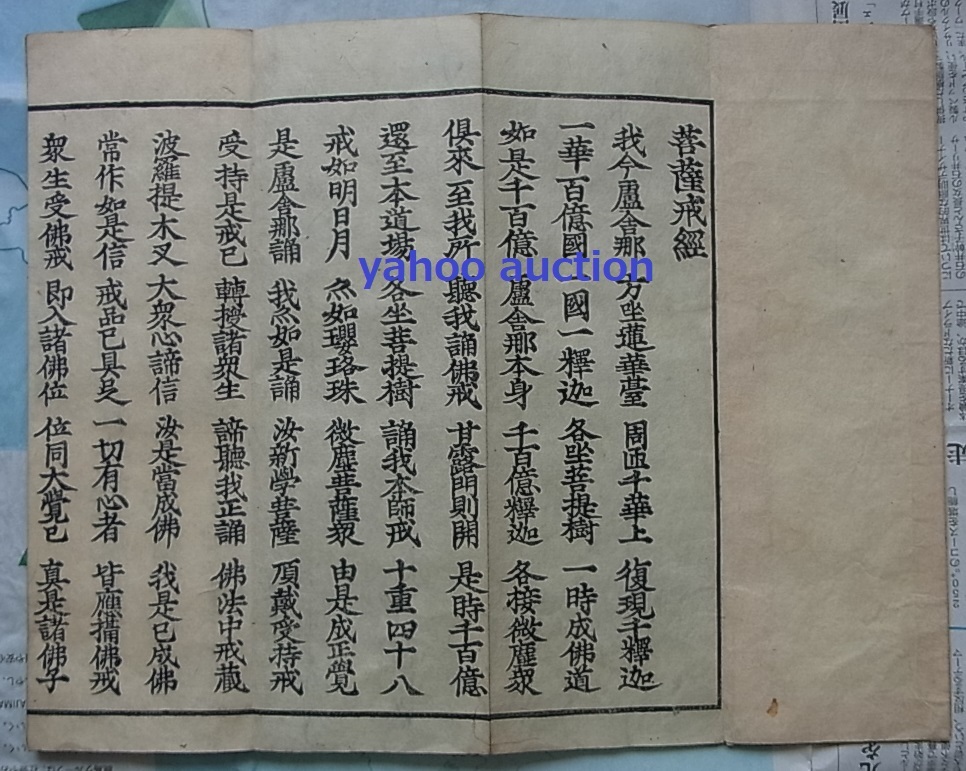 菩薩戒經
我今盧舎那 方坐蓮華臺 周匝千華上 復現千釋迦
一華百億國 一國一釋迦 各坐菩提樹 一時成佛道
如是千百億 盧舎那本身 千百億釋迦 各接微塵衆
俱來至我所 聽我誦佛戒 甘露門則開 是時千百億
還至本道場 各坐菩提樹 誦我本師戒 十重四十八
戒如明日月 亦如瓔珞珠 微塵菩薩衆 由是成正覺
是盧舎那誦 我亦如是誦 汝新學菩薩 頂戴受持戒
受持是戒已 轉授諸衆生 諦聽我正誦 佛法中戒藏
波羅提木叉 大衆心諦信 汝是當成佛 我是已成佛
常作如是信 戒品已具足 一切有心者 皆應攝佛戒
衆生受佛戒 即入諸佛位 位同大覺已 真是諸佛子
yahoo auction